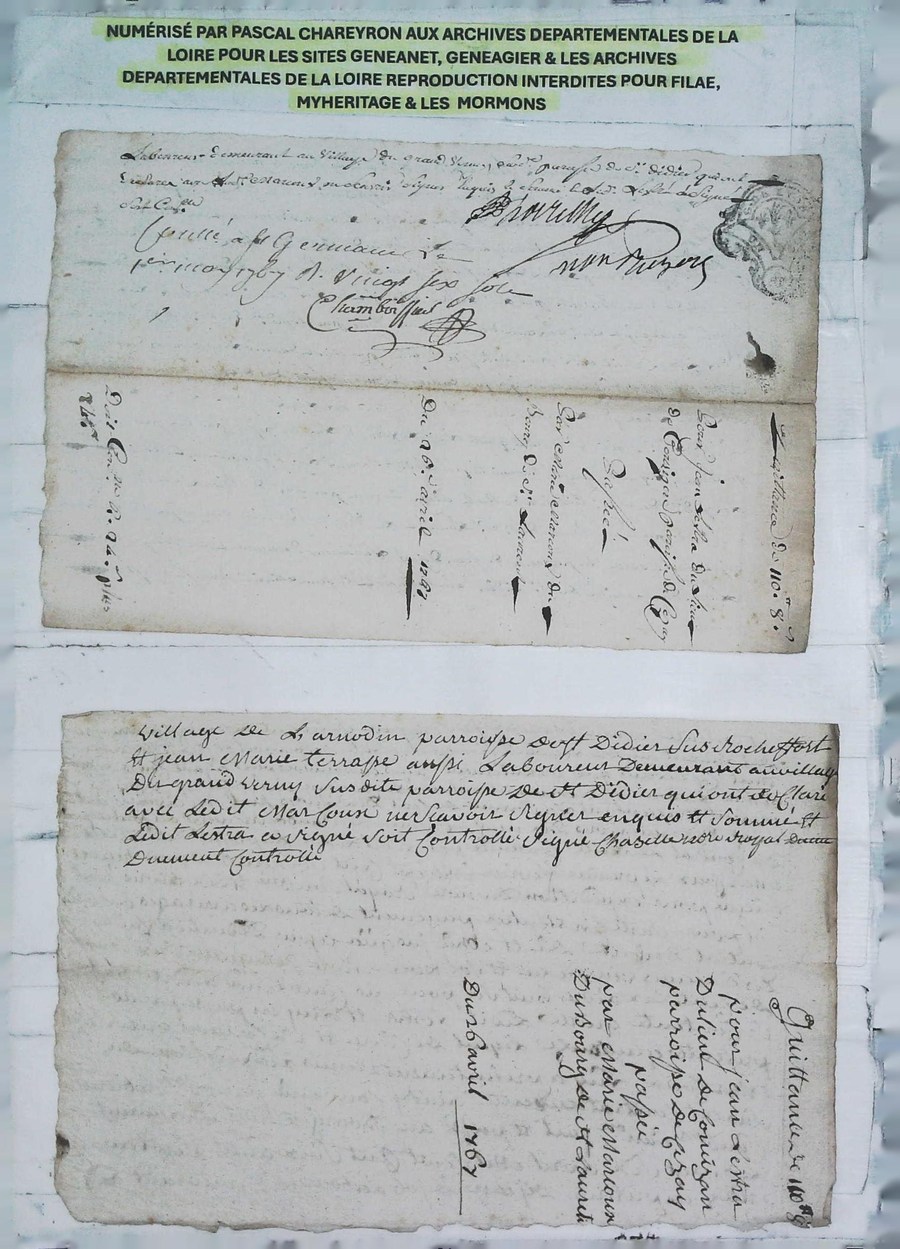 NUMÉRISÉ PAR PASCAL CHAREYRON AUX ARCHIVES DEPARTEMENTALES DE LA
LOIRE POUR LES SITES GENEANET, GENEAGIER & LES ARCHIVES
DEPARTEMENTALES DE LA LOIRE REPRODUCTION INTERDITES POUR FILAE,
MYHERITAGE & LES MORMONS
Laboureur demeurant au village du grand paroisse de St Didier qui ont
Soit Con.lle
Conllé a St Germain Le
1er may 1767 R. vingt six sols
Quittance de 110.tt 8.s
Pour jean Lestra du lieu
de paroisse de Cezay
Passée
Par marie du
Bourg de St Laurent
Du 26. avril 1767
village de Larnodin parroisse de st Didier sus Rocheffort
Et jean Marie terrasse aussi Laboureur Demeurant au village
Du grand verny susdite parroisse De st Didier qui ont declaré
avec Ledit ne scavoir signer enquis Et sommé Et
Ledit Lestra a signé soit Controllé Signé Chazelle royal
Duement Controllé
Quittance de 110tt 8s
pour jean Lestra
Du lieu de
parroisse de Cezay
passée
par Marie
Du Bourg de st Laurent
Du 26 avril 1767